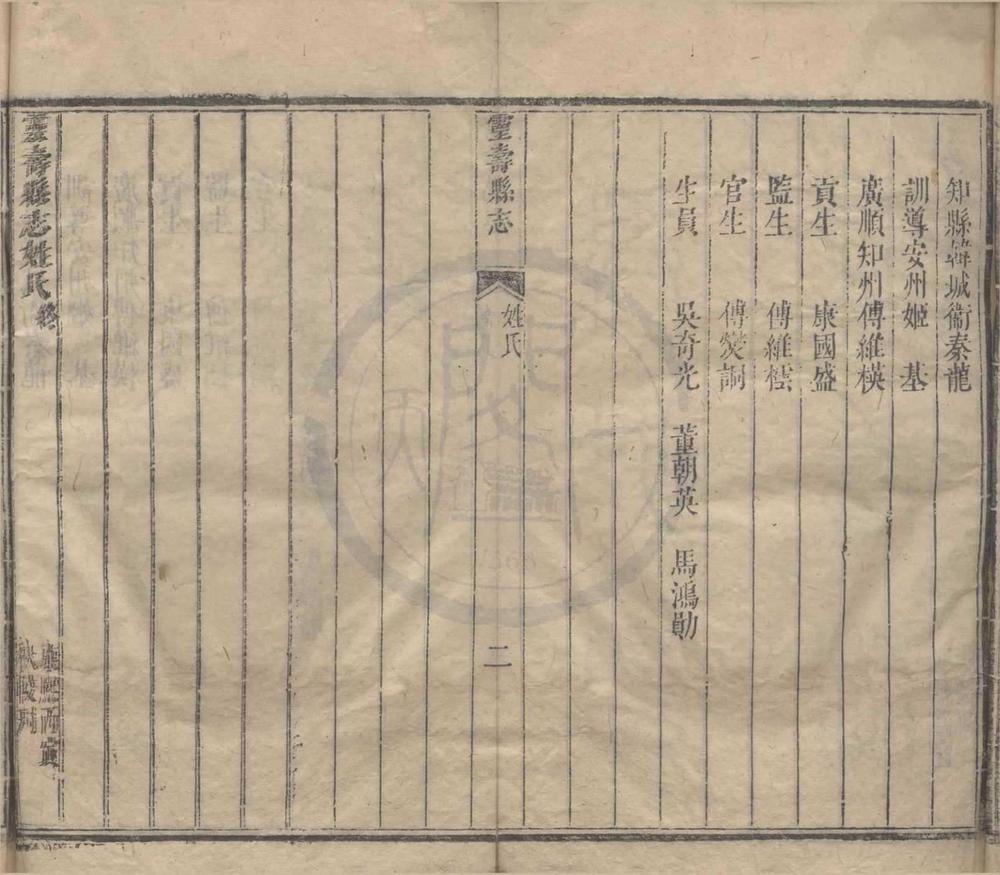 知縣韓城衞秦龍
訓導安州姬　基
廣順知州傅維橫
貢生　康國盛
監生　傅維樗
官生　傅燮詷
生員　吳奇光　董朝英　馬鴻勛
靈壽縣志　姓氏　二
靈壽縣志姓氏終
康熙丙寅